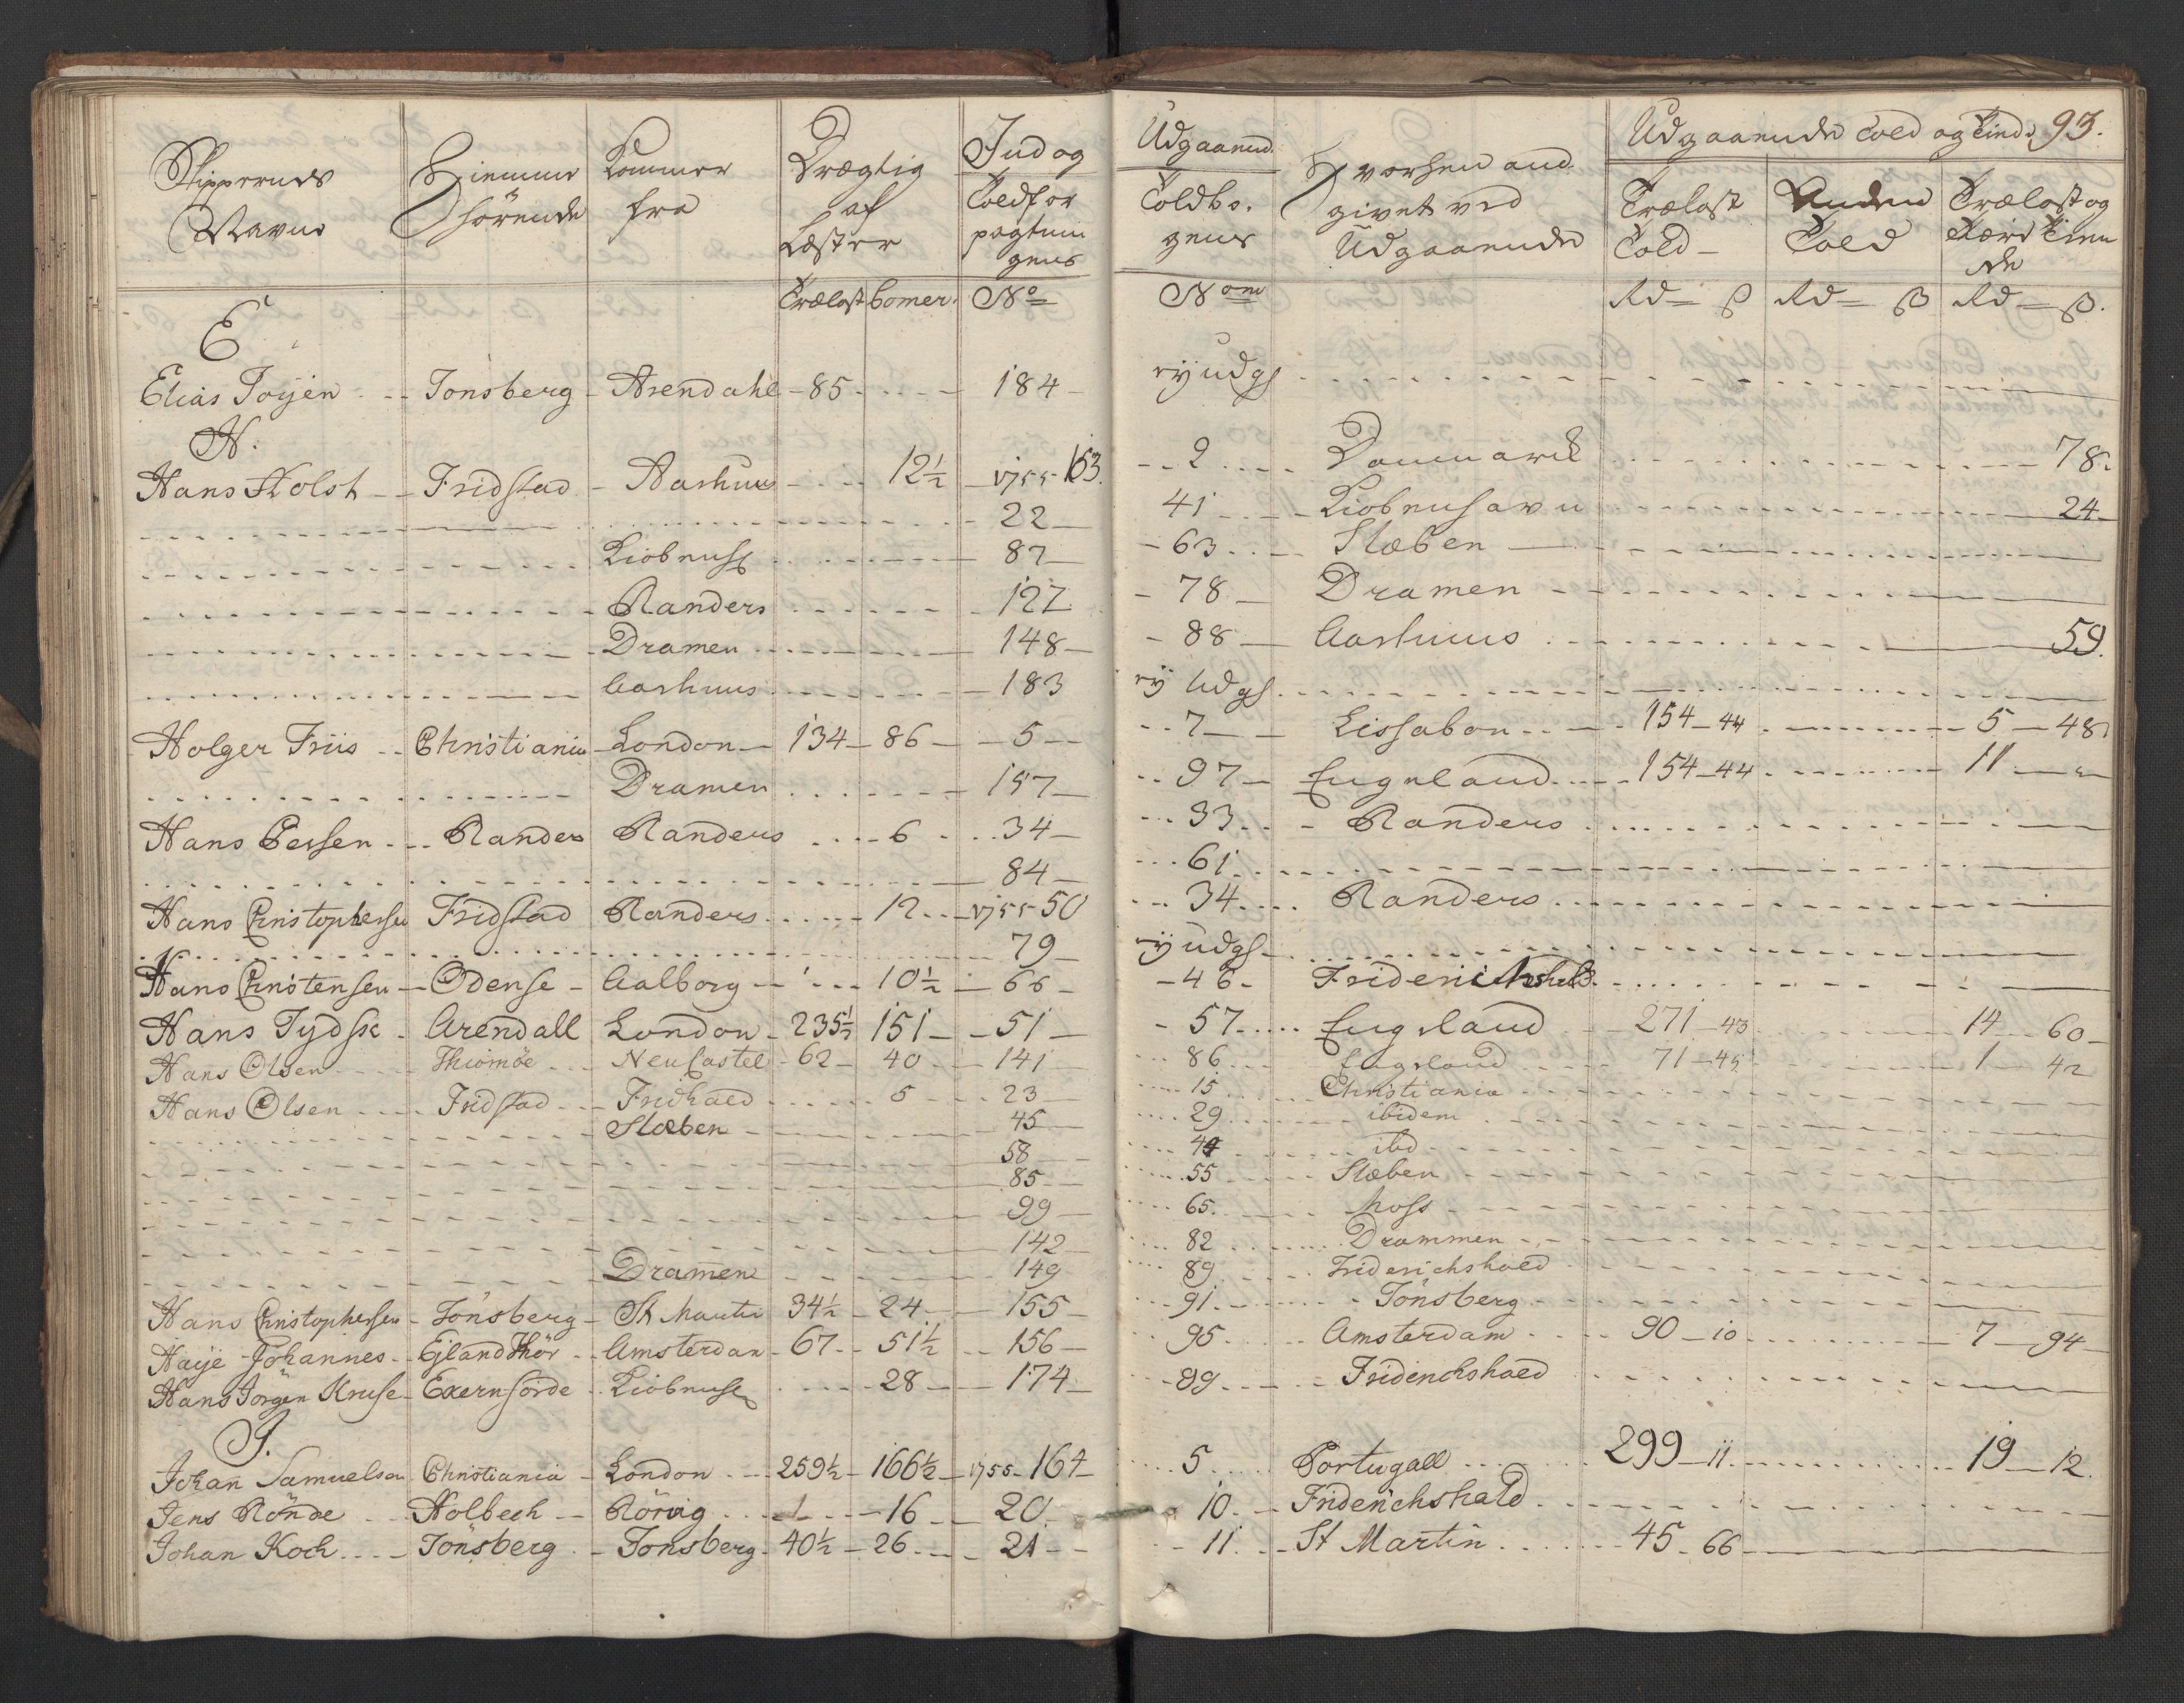 Skippernes Navne | Hiemme hörende | Kommer fra | Drægtig af Læster | Ind og Toldfor pagtnin gens | Udgaaend. Toldbo. gens | Hvorhen and givet ved Udgaaende | Udgaaende Told og Tiende 93.
Trælast Told | Anden Told | Trælast og Tiende
Trælast | Comer. | No | Nom | Rd ß | Rd ß | Rd ß.
E
Elias Toÿen | Tönsberg | Arendahl | 85 | 184 | eÿ udgl
H.
Hans Holst | Fridstad | Aarhuus | 12½ | 1755 - 163. | 2 | Danmarck | 78.
22 | 41 | Kiöbenhavn | 24
Kiöbenh | 87 | 63 | Slæben
Randers | 127 | 78 | Dramen
Dramen | 148 | 88 | Aarhuus | 59.
Aarhuus | 183 | eÿ Udgl
Holger Friis | Christiania | London | 134 | 86 | 5 | 7 | Lissabon | 154 - 44 | 5 - 48
Dramen | 157 | 97 | Engeland | 154 - 44 | 11
Hans Persen | Randers | Randers | 6 | 34 | 33 | Randers
84 | 61
Hans Christophersen | Fridstad | Randers | 12 | 1755 - 50 | 34 | Randers
79 | eÿ udgl
Hans Christensen | Odense | Aalborg | 10½ | 66 | 46 | Friderichshald
Hans Tÿdsk | Arendall | London | 235½ | 151 | 51 | 57 | Engeland | 271 - 43 | 14 - 60
Hans Olsen | Thiomöe | NeuCastel | 62 | 40 | 141 | 86 | Engeland | 71 - 45 | 1 - 42
Hans Olsen | Fridstad | Fridhald | 5 | 23 | 15 | Christiania
Slæben | 45 | 29 | ibidem
58 | 44 | ibd
85 | 55 | Slæben
99 | 65 | Moss
142 | 82 | Drammen
Dramen | 149 | 89 | Friderichshald
Hans Christophersen | Tönsberg | St Martin | 34½ | 24 | 155 | 91 | Tönsberg
Haÿe Johannes | Ejland Thör | Amsterdam | 67 | 51½ | 156 | 95 | Amsterdam | 90 - 10 | 7 - 94
Hans Jörgen Kruse | Exernförde | Kiöbenh | 28 | 174 | 99 | Friderichshald
J.
Johan Samuelsen | Christiania | London | 259½ | 166½ | 1755 - 164 | 5 | Portugall | 299 - 11 | 19 - 12.
Jens Rönde | Holbech | Rörvig | 16 | 20 | 10 | Friderichshald
Johan Koch | Tönsberg | Tönsberg | 40½ | 26 | 21 | 11 | St Martin | 45 - 66